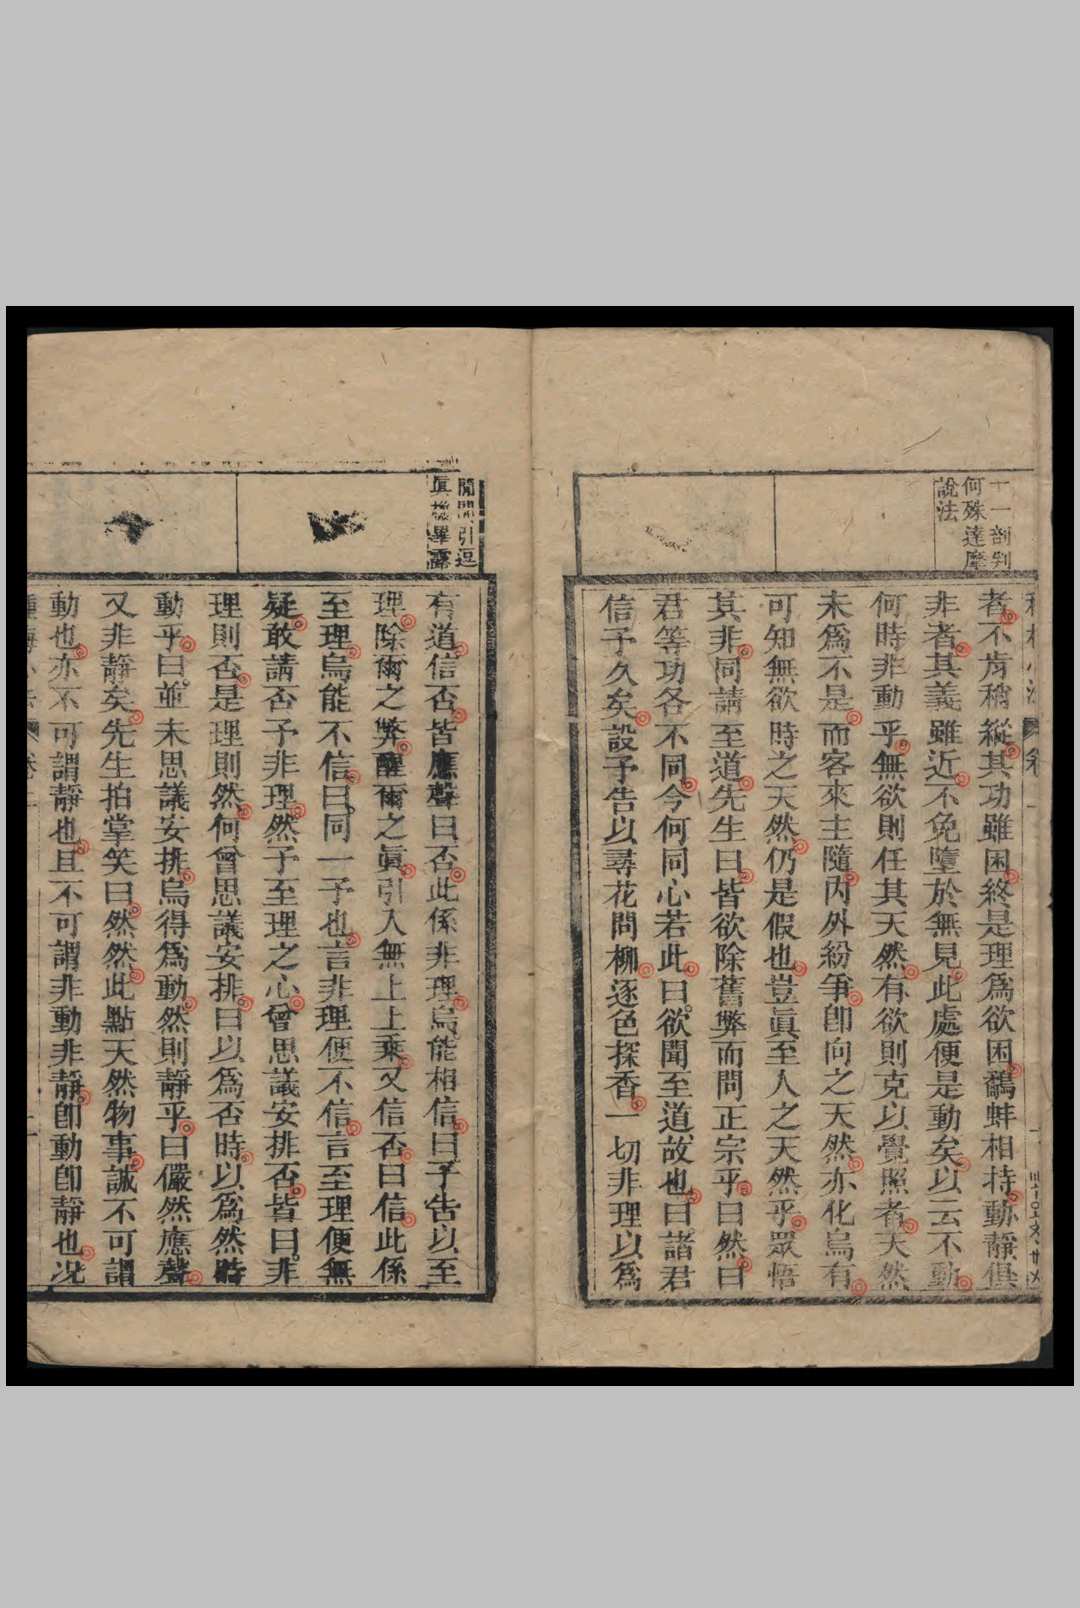 一一剖判
何殊達摩
說法
者不肯稍縱其功雖困終是理爲欲困鷸蚌相持動靜俱
非者其義雖近不免墮於無見此處便是動矣以云不動
何時非動乎無欲則任其天然有欲則克以覺照者天然
未爲不是而客來主隨内外紛爭卽向之天然亦化烏有
可知無欲時之天然仍是假也豈眞至人之天然乎眾悟
其非同請至道先生曰皆欲除舊弊而問正宗乎曰然曰
君等功各不同今何同心若此曰欲聞至道故也曰諸君
信予久矣設予告以尋花問柳逐色探香一切非理以爲
閒閒引逗
眞機畢露
有道信否皆應聲曰否此係非理烏能相信曰予告以至
理除爾之弊醒爾之眞引入無上上乘又信否曰信此係
至理烏能不信曰同一予也言非理便不信言至理便無
疑敢請否予非理然予至理之心曾思議安排否皆曰非
理則否是理則然何曾思議安排曰以爲否時以爲然時
動乎曰並未思議安排烏得爲動然則靜乎曰儼然應聲
又非靜矣先生拍掌笑曰然然此點天然物事誠不可謂
動也亦不可謂靜也且不可謂非動非靜卽動卽靜也况